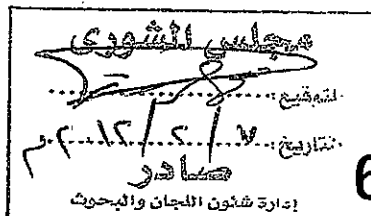 مجلس الشورى
التوقيع:
التاريخ: ٧ / ٢ / ٢٠١٢ م
صادر
إدارة شئون اللجان والبحوث
6